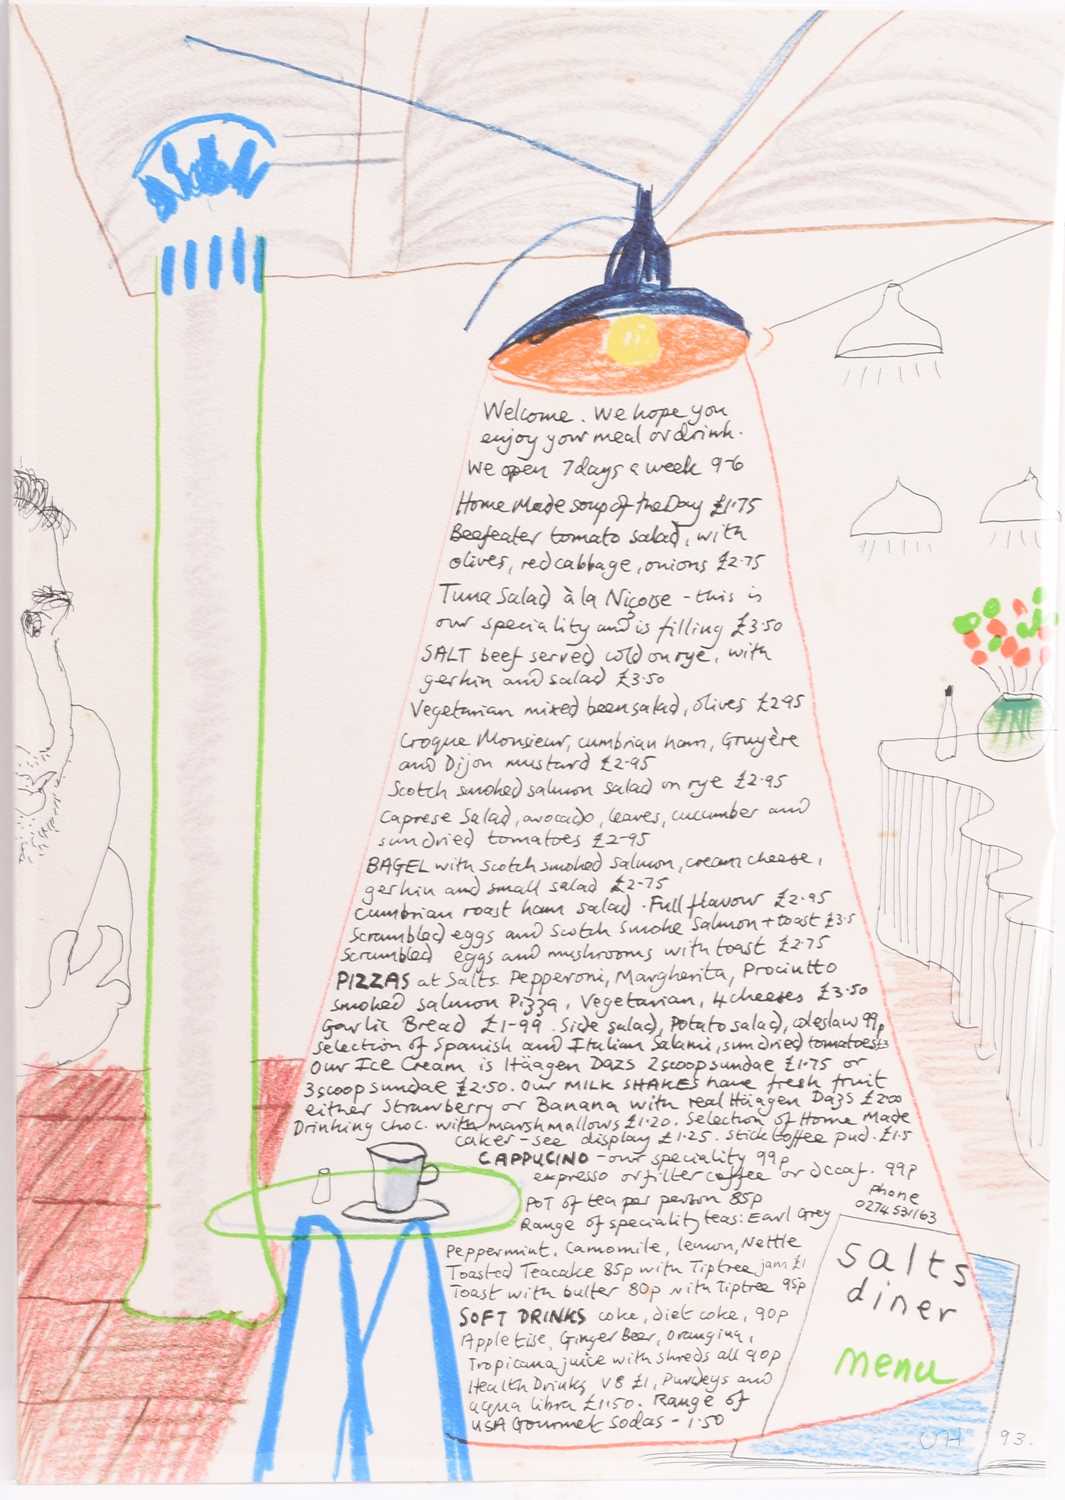 Welcome. We hope you
enjoy your meal or drink.
We open 7 days a week 9-6
Home Made soup of the Day £1.75
Beefeater tomato salad, with
olives, red cabbage, onions £2.75
Tuna Salad à la Niçoise - this is
our speciality and is filling £3.50
SALT beef served cold on rye, with
gerkin and salad £3.50
Vegetarian mixed been salad, olives £2.95
Croque Monsieur, cumbrian ham, Gruyère
and Dijon mustard £2.95
Scotch smoked salmon salad on rye £2.95
Caprese Salad, avocado, leaves, cucumber and
sundried tomatoes £2-95
BAGEL with Scotch smoked salmon, cream cheese,
gerkin and small salad £2-75
Cumbrian roast ham salad. Full flavour £2.95
Scrambled eggs and Scotch Smoke Salmon + toast £3.5
Scrambled eggs and mushrooms with toast £2.75
PIZZAS at Salts. Pepperoni, Margherita, Prociutto
smoked salmon Pizza, Vegetarian, 4 cheeses £3.50
Garlic Bread £1-99. Side salad, Potato salad, coleslaw 99p
Selection of Spanish and Italian Salami, sundried tomatoes £3
Our Ice Cream is Häagen Dazs 2 scoop sundae £1.75 or
3 scoop sundae £2.50. Our MILK SHAKES have fresh fruit
either Strawberry or Banana with real Häagen Dazs £2.00
Drinking choc. with marshmallows £1.20. Selection of Home Made
cakes - see display £1.25. Stick toffee pud. £1.5
CAPPUCINO - our speciality 99p
expresso or filter coffee or decaf. 99p
POT of tea per person 85p
Range of speciality teas: Earl Grey
Peppermint, Camomile, lemon, Nettle
Toasted Teacake 85p with Tiptree jam £1
Toast with butter 80p with Tiptree 95p
SOFT DRINKS coke, diet coke, 90p
Appletise, Ginger Beer, Orangina,
Tropicana juice with shreds all 90p
Health Drinks V8 £1, Purdeys and
aqua libra £1.50. Range of
USA Gourmet Sodas - 1.50
phone
0274 531163
salts
diner
menu
DH 93.